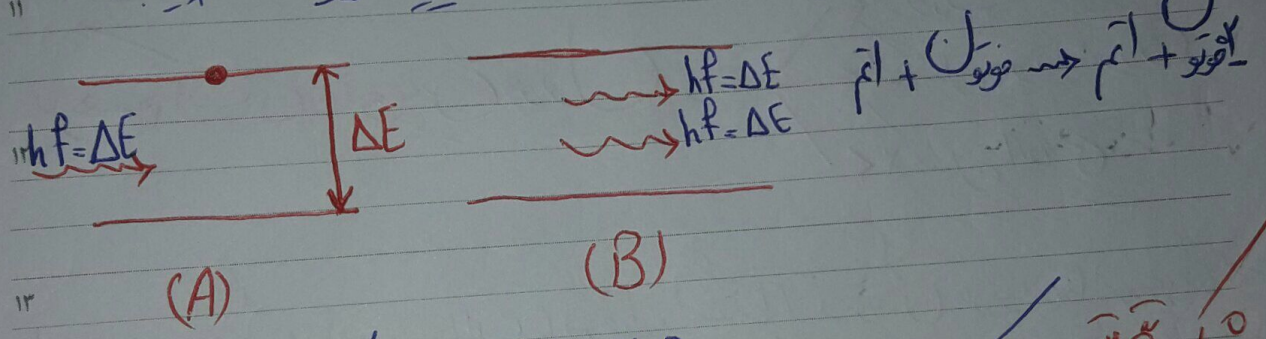 ۱۱
hf=ΔE
ΔE
hf=ΔE
hf=ΔE
اتم + فوتون → اتم + ۲فوتون
۱۲
(A)
(B)
۱۳